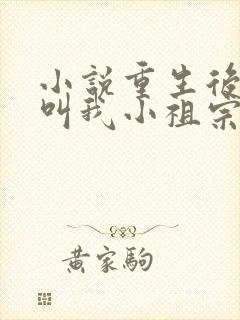 小說重生後
叫我小祖宗
黃家駒